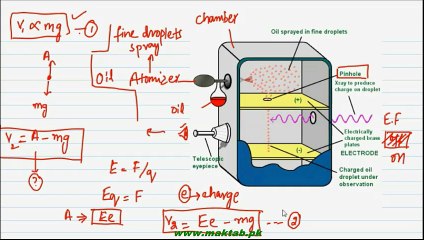 V₁ ∝ mg — ①
A
mg
V₂ = A - mg
?
A → Ee
fine droplets
spray
Oil Atomizer
E = F/q
Eq = F
chamber
oil
e → charge
V₂ = Ee - mg --- ②
Oil sprayed in fine droplets
Pinhole
Xray to produce
charge on droplet
(+)
Electrically
charged brass
plates
ELECTRODE
(-)
Telescopic
eyepiece
Charged oil
droplet under
observation
E.F
on
www.maktab.pk